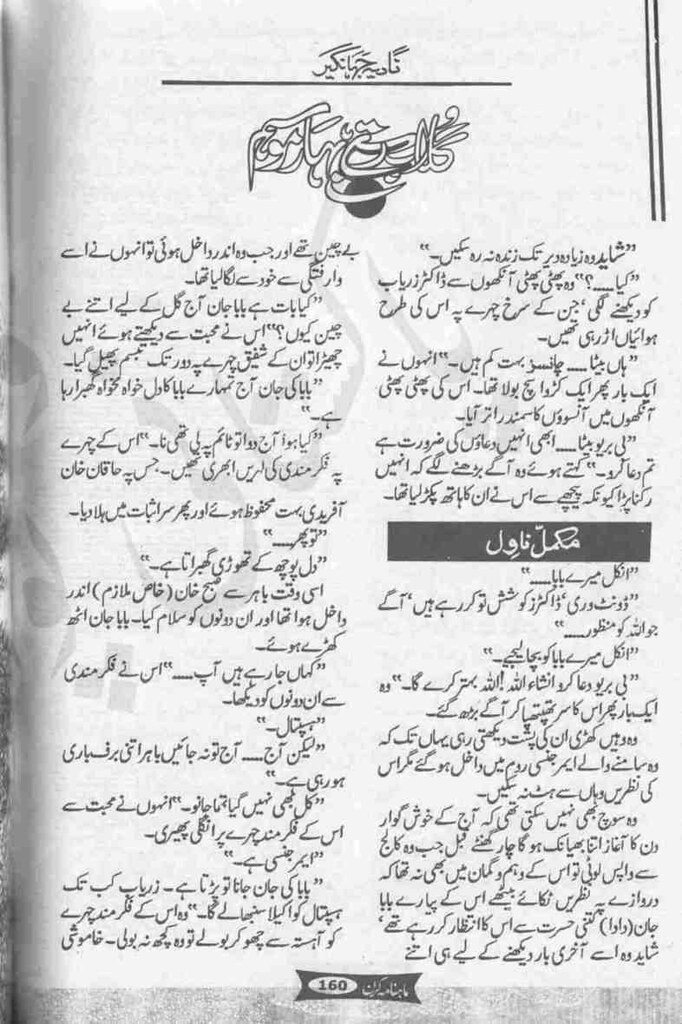 نادیہ جہانگیر
گلاب رتے بہار موسم
”شاید وہ زیادہ دیر تک زندہ نہ رہ سکیں۔“
”کیا.....؟“ وہ پھٹی پھٹی آنکھوں سے ڈاکٹر زریاب
کو دیکھنے لگی‘ جن کے سرخ چہرے پہ اس کی طرح
ہوائیاں اڑ رہی تھیں۔
”ہاں بیٹا..... چانسز بہت کم ہیں۔“ انہوں نے
ایک بار پھر ایک کڑوا سچ بولا تھا۔ اس کی پھٹی پھٹی
آنکھوں میں آنسوؤں کا سمندر اتر آیا۔
”بی بریو بیٹا..... ابھی انہیں دعاؤں کی ضرورت ہے
تم دعا کرو۔“ کہتے ہوئے وہ آگے بڑھنے لگے کہ انہیں
رکنا پڑا کیونکہ پیچھے سے اس نے ان کا ہاتھ پکڑ لیا تھا۔
مکمل ناول
”انکل میرے بابا.....“
”ڈونٹ وری‘ ڈاکٹرز کوشش تو کر رہے ہیں‘ آگے
جو اللہ کو منظور.....“
”انکل میرے بابا کو بچا لیجیے۔“
”بی بریو دعا کرو انشاء اللہ! اللہ بہتر کرے گا۔“ وہ
ایک بار پھر اس کا سر تھپتھپا کر آگے بڑھ گئے۔
وہ وہیں کھڑی ان کی پشت دیکھتی رہی یہاں تک کہ
وہ سامنے والے ایمرجنسی روم میں داخل ہو گئے مگر اس
کی نظریں وہاں سے ہٹ نہ سکیں۔
وہ سوچ بھی نہیں سکتی تھی کہ آج کے خوش گوار
دن کا آغاز اتنا بھیانک ہو گا چار گھنٹے قبل جب وہ کالج
سے واپس لوٹی تو اس کے وہم و گمان میں بھی نہ تھا کہ
دروازے پہ نظریں ٹکائے بیٹھے اس کے پیارے بابا
جان (دادا) کتنی حسرت سے اس کا انتظار کر رہے تھے‘
شاید وہ اسے آخری بار دیکھنے کے لیے ہی اتنے
بے چین تھے اور جب وہ اندر داخل ہوئی تو انہوں نے اسے
وارفتگی سے خود سے لگا لیا تھا۔
”کیا بات ہے بابا جان آج گل کے لیے اتنے بے
چین کیوں؟“ اس نے محبت سے دیکھتے ہوئے انہیں
چھیڑا تو ان کے شفیق چہرے پہ دور تک تبسم پھیل گیا۔
”بابا کی جان آج تمہارے بابا کا دل خواہ مخواہ گھبرا رہا
ہے۔“
”کیا ہوا آج دوا تو ٹائم پہ لی تھی نا۔“ اس کے چہرے
پہ فکر مندی کی لہریں ابھری تھیں۔ جس پہ خاقان خان
آفریدی بہت محفوظ ہوئے اور پھر سر اثبات میں ہلا دیا۔
”تو پھر.....“
”دل پوچھ کے تھوڑی گھبراتا ہے۔“
اسی وقت باہر سے صبح خان (خاص ملازم) اندر
داخل ہوا تھا اور ان دونوں کو سلام کیا۔ بابا جان اٹھ
کھڑے ہوئے۔
”کہاں جا رہے ہیں آپ.....“ اس نے فکر مندی
سے ان دونوں کو دیکھا۔
”ہسپتال۔“
”لیکن آج..... آج تو نہ جائیں باہر اتنی برف باری
ہو رہی ہے۔“
”کل بھی نہیں گیا تھا جانو۔“ انہوں نے محبت سے
اس کے فکر مند چہرے پر انگلی پھیری۔
”ایمرجنسی ہے۔“
”بابا کی جان جانا تو پڑتا ہے۔ زریاب کب تک
ہسپتال کو اکیلا سنبھالے گا۔“ وہ اس کے فکر مند چہرے
کو آہستہ سے چھو کر بولے تو وہ کچھ نہ بولی۔ خاموشی
ماہنامہ کرن 160